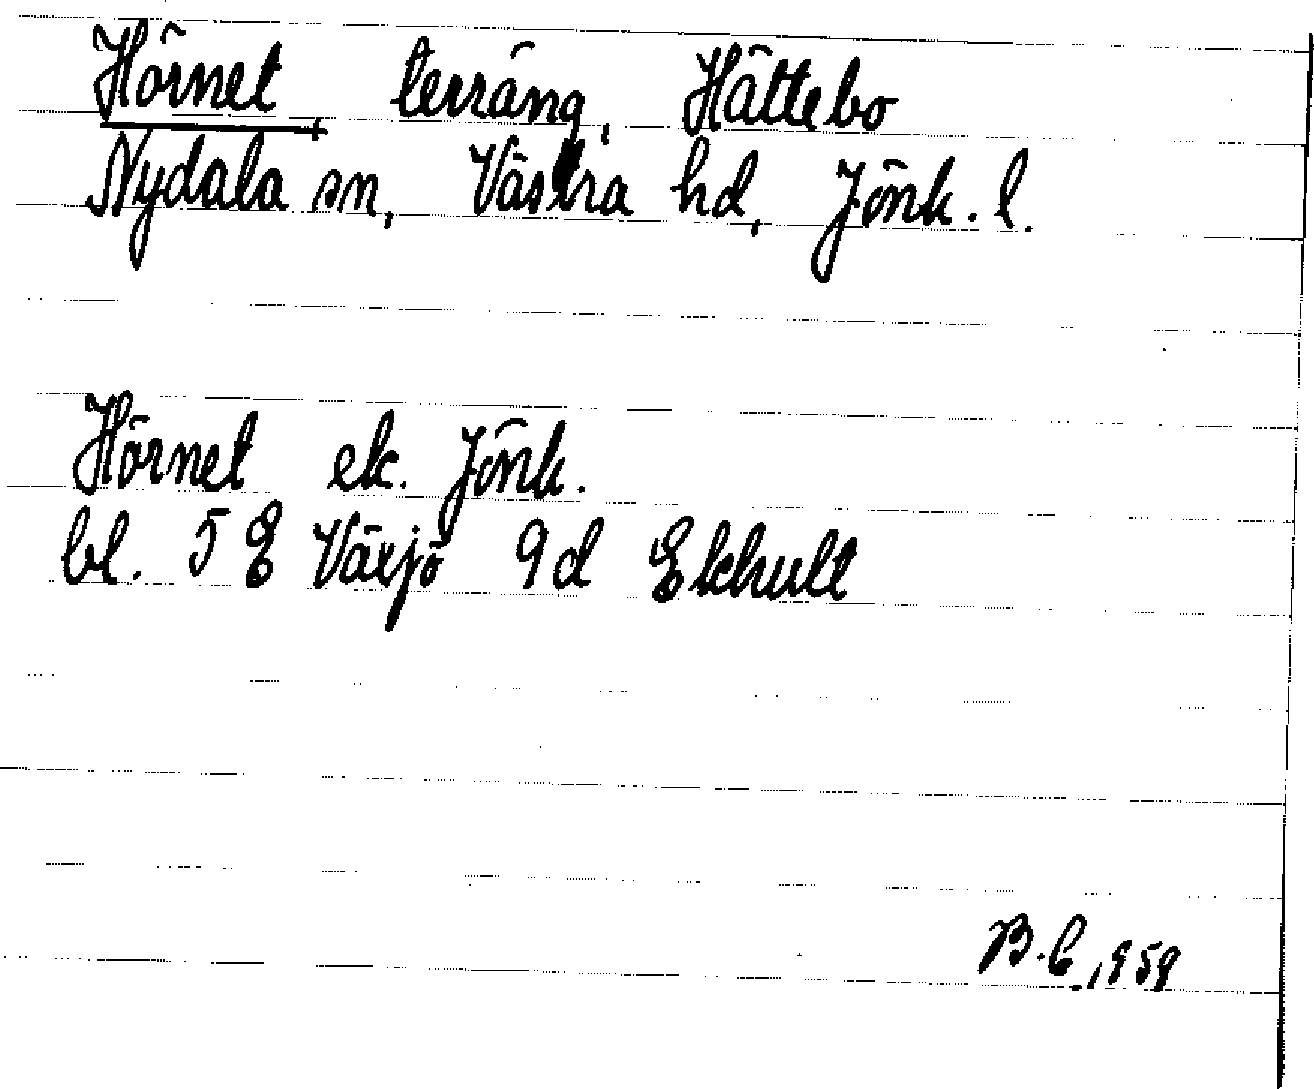 Hörnet, terräng, Hättebo
Nydala sn, Västra hd, Jönk. l.
Hörnet ek. Jönk.
bl. 5 E Växjö 9d Ekhult
B.C. 1958